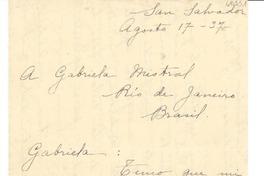 San Salvador
Agosto 17-37
A Gabriela Mistral
Río de Janeiro
Brasil.
Gabriela:
Temo que mi